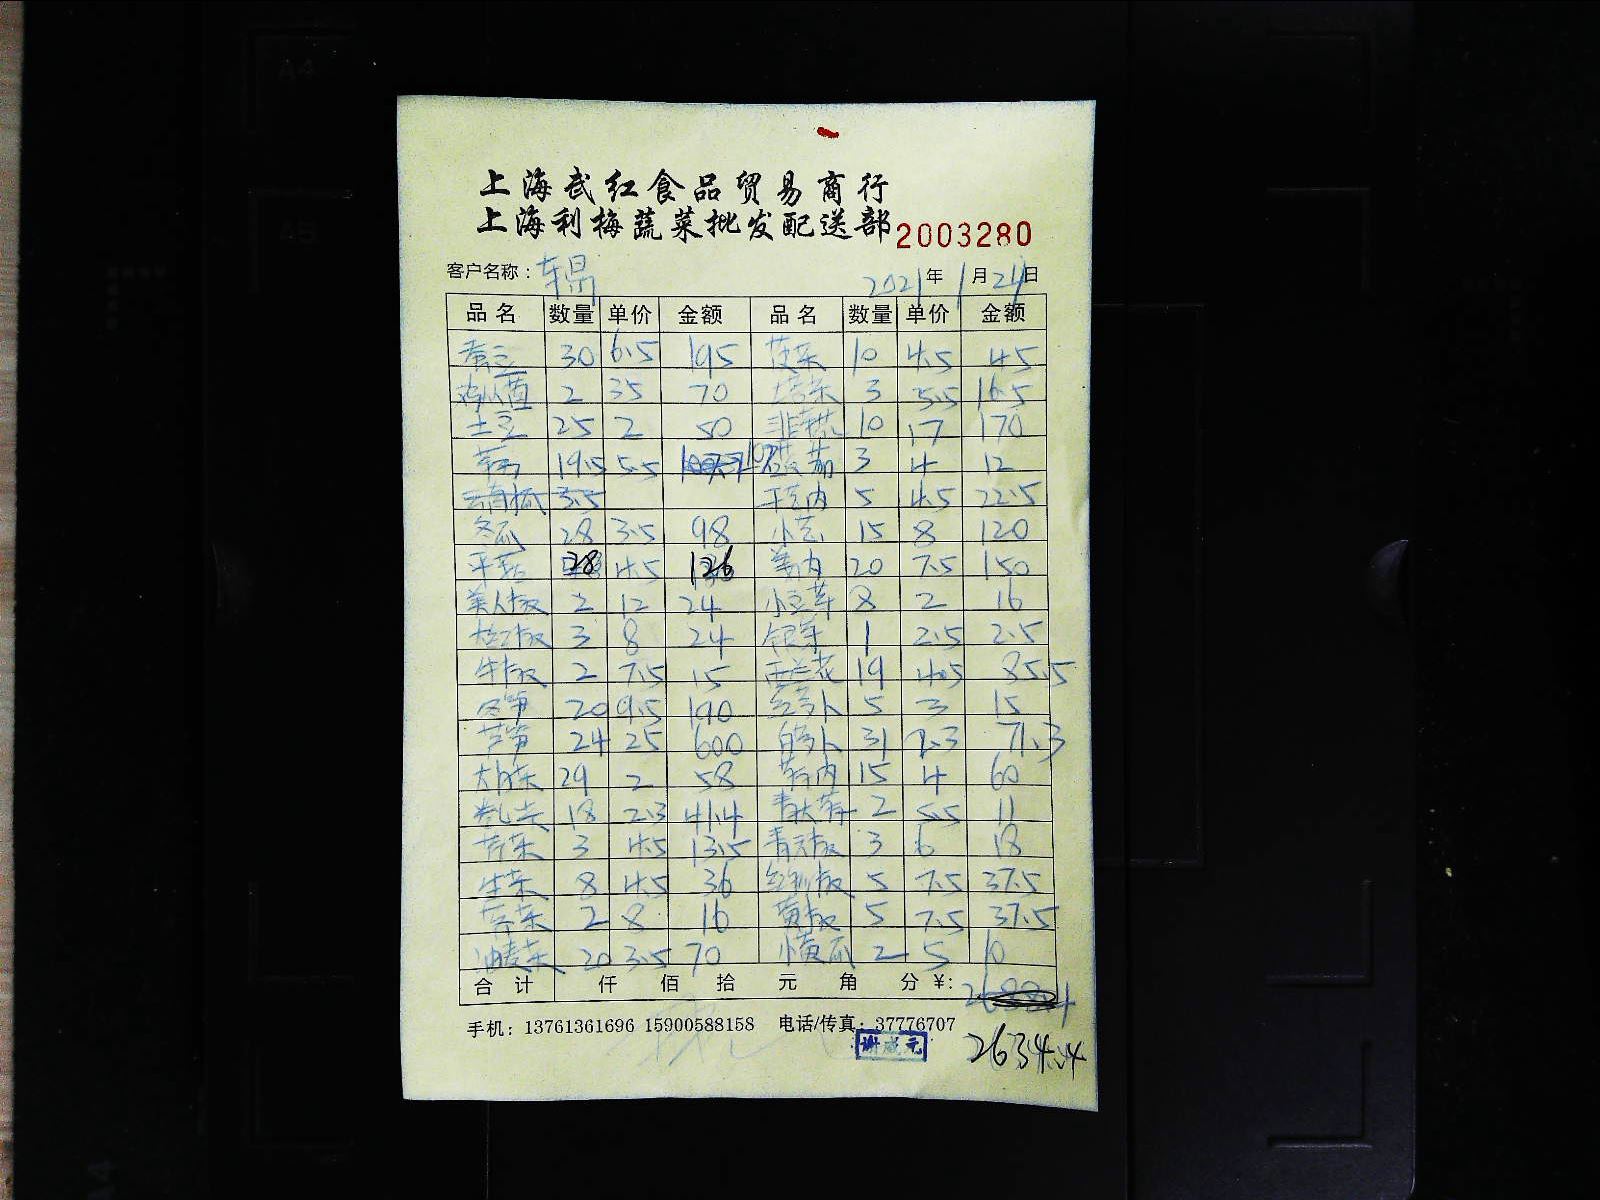 上海武红食品贸易商行
上海利梅蔬菜批发配送部 2003280
客户名称: 2021年1月24日
品名 数量 单价 金额 品名 数量 单价 金额
30 6.5 195 10 4.5 45
2 35 70 3 5.5 16.5
土豆 25 2 50 10 17 170
19.5 5.5 3 4 12
3.5 5 4.5 22.5
冬瓜 28 3.5 98 15 8 120
平菇 28 4.5 126 20 7.5 150
美人椒 2 12 24 小豆芽 8 2 16
3 8 24 银芽 1 2.5 2.5
牛椒 2 7.5 15 西兰花 19 4.5 85.5
冬笋 20 9.5 190 红萝卜 5 3 15
芦笋 24 25 600 白萝卜 31 2.3 71.3
大白菜 29 2 58 15 4 60
卷心菜 18 2.3 41.4 2 5.5 11
3 4.5 13.5 青元椒 3 6 18
生菜 8 4.5 36 5 7.5 37.5
2 8 16 黄椒 5 7.5 37.5
油麦菜 20 3.5 70 小黄瓜 2 5 10
合计 仟 佰 拾 元 角 分 ¥:
手机: 13761361696 15900588158 电话/传真: 37776707
谢成元
2634.4